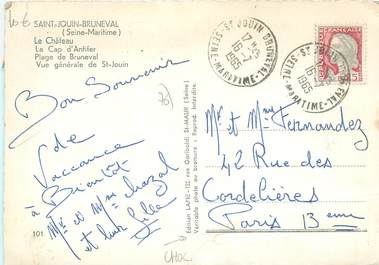 SAINT-JOUIN-BRUNEVAL
(Seine-Maritime)
Le Château
Le Cap d'Antifer
Plage de Bruneval
Vue générale de St-Jouin
Bon Souvenir
de
Vacance
à Bientôt
Mr et Mme Chazal
et leur fille
101
Edition LAPIE-152 rue Garibaldi St-MAUR (Seine)
Véritable photo au bromure - Reprod. Interdite.
ST JOUIN BRUNEVAL
SEINE-MARITIME
17H
16-7
1965
ST JOUIN BRUNEVAL
SEINE-MARITIME
16-7
1965
Mr et Mme Fernandez
42 Rue des
Cordelières
Paris 13eme
CHOC